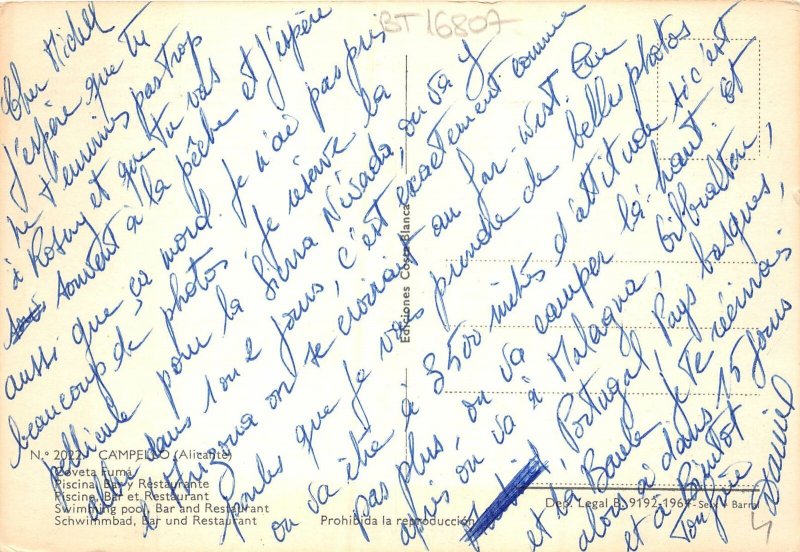 BT 16807
Cher Michel
J'espère que tu
ne t'ennuies pas trop
à Rosny et que tu vas
souvent à la pêche et j'espère
aussi que ça mord. Je n'ai pas pris
beaucoup de photos, je réserve la
pellicule pour la Sierra Nivada, on va y
aller dans 1 ou 2 jours, c'est exactement comme
l'Arizona on se croirait au far-west. Une
que je vais prendre de belles photos
on va être à 3500 mètres d'attitude si c'est
pas plus, on va camper là-haut et
après on va à Malagua, Gilbraltar,
Portugal, Pays basques,
et la Baule, je te réécrirais
alors à dans 15 jours
et à Bientôt
Ton frère
Daniel
N.º 2022 - CAMPELLO (Alicante)
Coveta Fumá
Piscina, Bar y Restaurante
Piscine, Bar et Restaurant
Swimming pool, Bar and Restaurant
Schwimmbad, Bar und Restaurant
Prohibida la reproducción
Ediciones Costa Blanca
Dep. Legal B. 9192-1964 - Seix y Barral